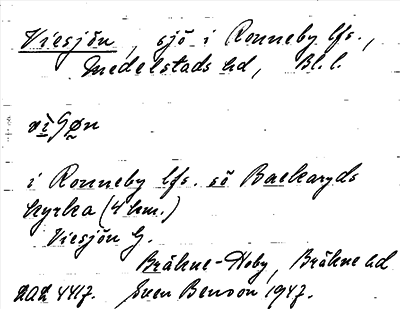 Viesjön, sjö i Ronneby lfs.,
Medelstads hd, Bl. l.
i Ronneby lfs. sö Backaryds
kyrka (4 km.)
Viesjön G.
Bräkne-Hoby, Bräkne hd
Sven Benson 1947.